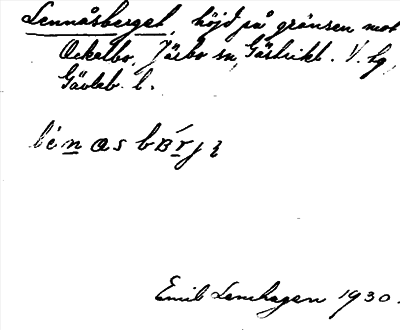 Lennåsberget, höjd på gränsen mot
Ockelbo, Järbo sn, Gästrikl. V. lg,
Gävleb. l.
lènasbærjɩ
Emil Lenhagen 1930.